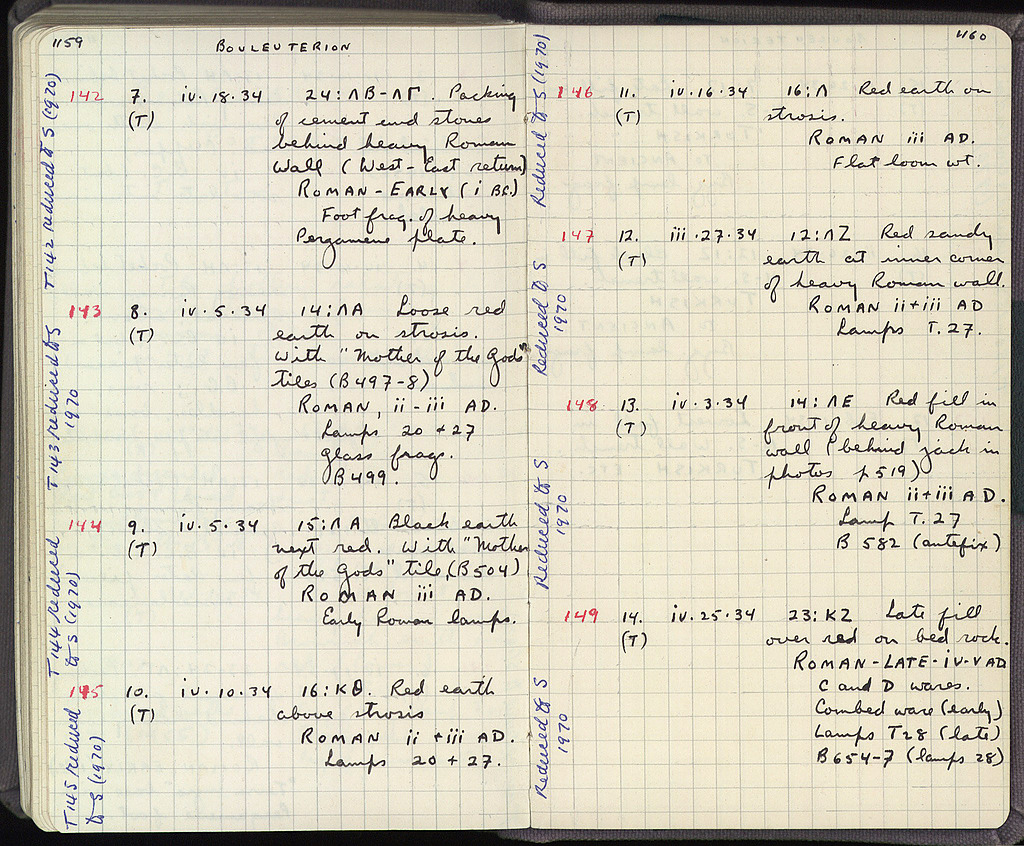 1159
BOULEUTERION
142 7. iv.18.34 24:ΛB-ΛΓ. Packing
(T) of cement and stones
behind heavy Roman
wall (West-East return)
ROMAN-EARLY (i BC.)
Foot frag. of heavy
Pergamene plate.
T142 reduced to S (1970)
143 8. iv.5.34 14:ΛA Loose red
(T) earth on strosis.
With "Mother of the Gods"
tiles (B497-8)
ROMAN, ii-iii AD.
Lamps 20 + 27
Glass frags.
B499.
T143 reduced to S
1970
144 9. iv.5.34 15:ΛA Black earth
(T) next red. With "Mother
of the Gods" tile, (B504)
ROMAN iii AD.
Early Roman lamps.
T144 reduced
to S (1970)
145 10. iv.10.34 16:KΘ. Red earth
(T) above strosis
ROMAN ii + iii AD.
Lamps 20 + 27.
T145 reduced
to S (1970)
1160
146 11. iv.16.34 16:Λ Red earth on
(T) strosis.
ROMAN iii AD.
Flat loom wt.
Reduced to S (1970)
147 12. iii.27.34 12:ΛZ Red sandy
(T) earth at inner corner
of heavy Roman wall.
ROMAN ii+iii AD
Lamps T.27.
Reduced to S
1970
148 13. iv.3.34 14:ΛE Red fill in
(T) front of heavy Roman
wall (behind jack in
photos p519)
ROMAN ii+iii AD.
Lamp T.27
B 582 (antefix)
Reduced to S
1970
149 14. iv.25.34 23:KZ Late fill
(T) over red on bed rock.
ROMAN-LATE-iv-v AD
C and D wares.
Combed ware (early)
Lamps T28 (late)
B654-7 (lamps 28)
Reduced to S
1970